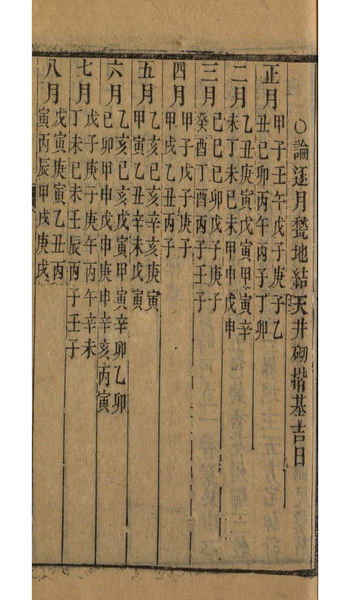 ○論逐月甃地結天井砌揩基吉日
正月甲子壬午戊子庚子乙
丑己卯丙午丙子丁卯
二月乙丑庚寅戊寅甲寅辛
未丁未己未甲申戊申
三月己巳己卯戊子庚子
癸酉丁酉丙子壬子
四月甲子戊子庚子
甲戌乙丑丙子
五月乙亥己亥辛亥庚寅
甲寅乙丑辛未戊寅
六月乙亥己亥戊寅甲寅辛卯乙卯
己卯甲申戊申庚申辛亥丙寅
七月戊子庚子庚午丙午辛未
丁未己未壬辰丙子壬子
八月戊寅庚寅乙丑丙
寅丙辰甲戌庚戌